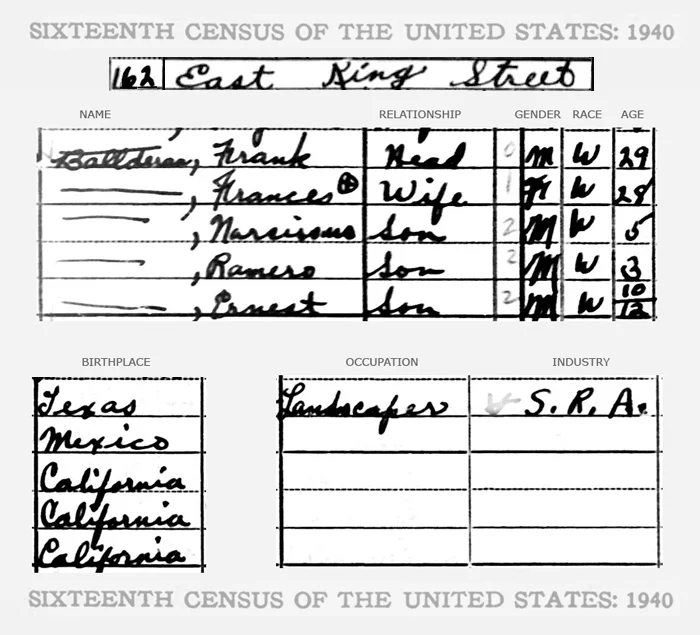 SIXTEENTH CENSUS OF THE UNITED STATES: 1940
162 East King Street
NAME RELATIONSHIP GENDER RACE AGE
Ballderas, Frank Head 0 M W 29
, Frances Wife 1 F W 28
, Narsissus Son 2 M W 5
, Ramero Son 2 M W 3
, Ernest Son 2 M W 10/12
BIRTHPLACE OCCUPATION INDUSTRY
Texas Landscaper S. R. A.
Mexico
California
California
California
SIXTEENTH CENSUS OF THE UNITED STATES: 1940